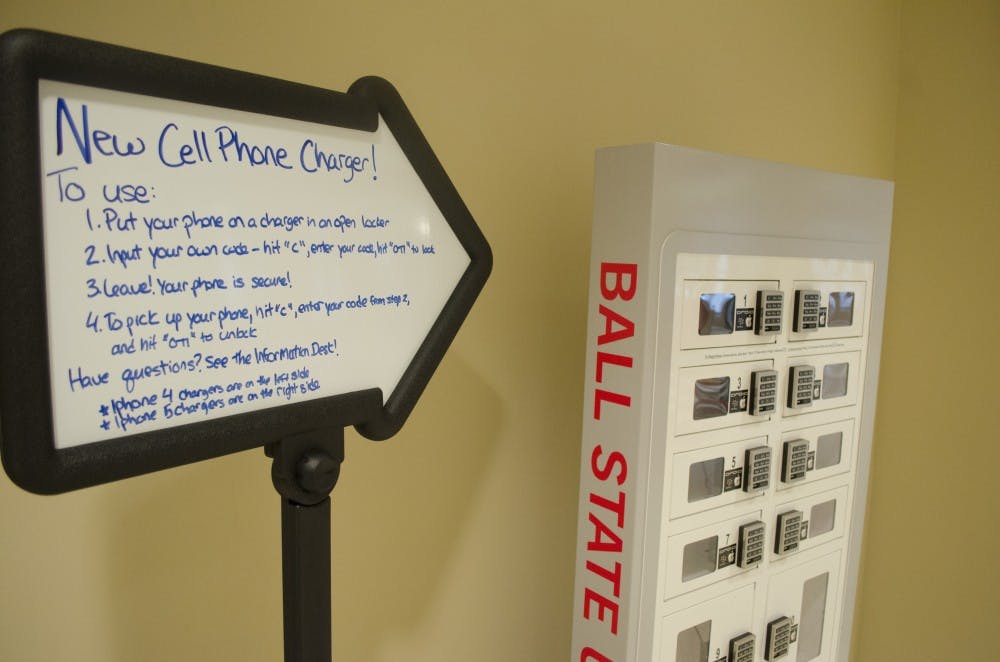 New Cell Phone Charger!
To use:
1. Put your phone on a charger in an open locker
2. Input your own code - hit "C", enter your code, hit "O⊓" to lock
3. Leave! Your phone is secure!
4. To pick up your phone, hit "C", enter your code from step 2,
and hit "O⊓" to unlock
Have questions? See the Information Desk!
* Iphone 4 chargers are on the left side
* Iphone 5 chargers are on the right side
BALL STATE U
1
3
5
7
9